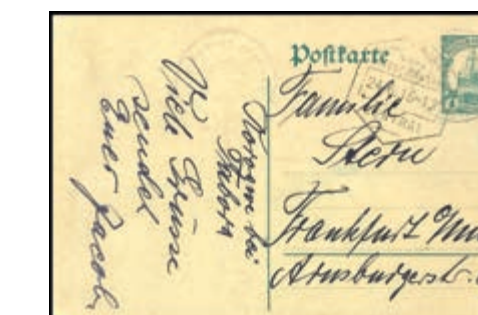 Postkarte
Familie
Stern
Frankfurt
Arnsburgerstr.
bei
Tabora
Viele Grüsse
sendet
Euer Jacob